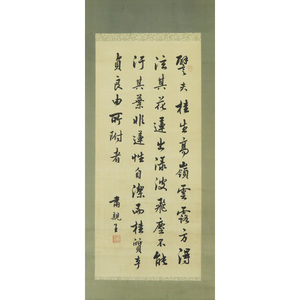 譬夫桂生高嶺雲露方得
泫其花蓮出淥波飛塵不能
汙其葉非蓮性自潔而桂質本
貞良由所附者
肅親王